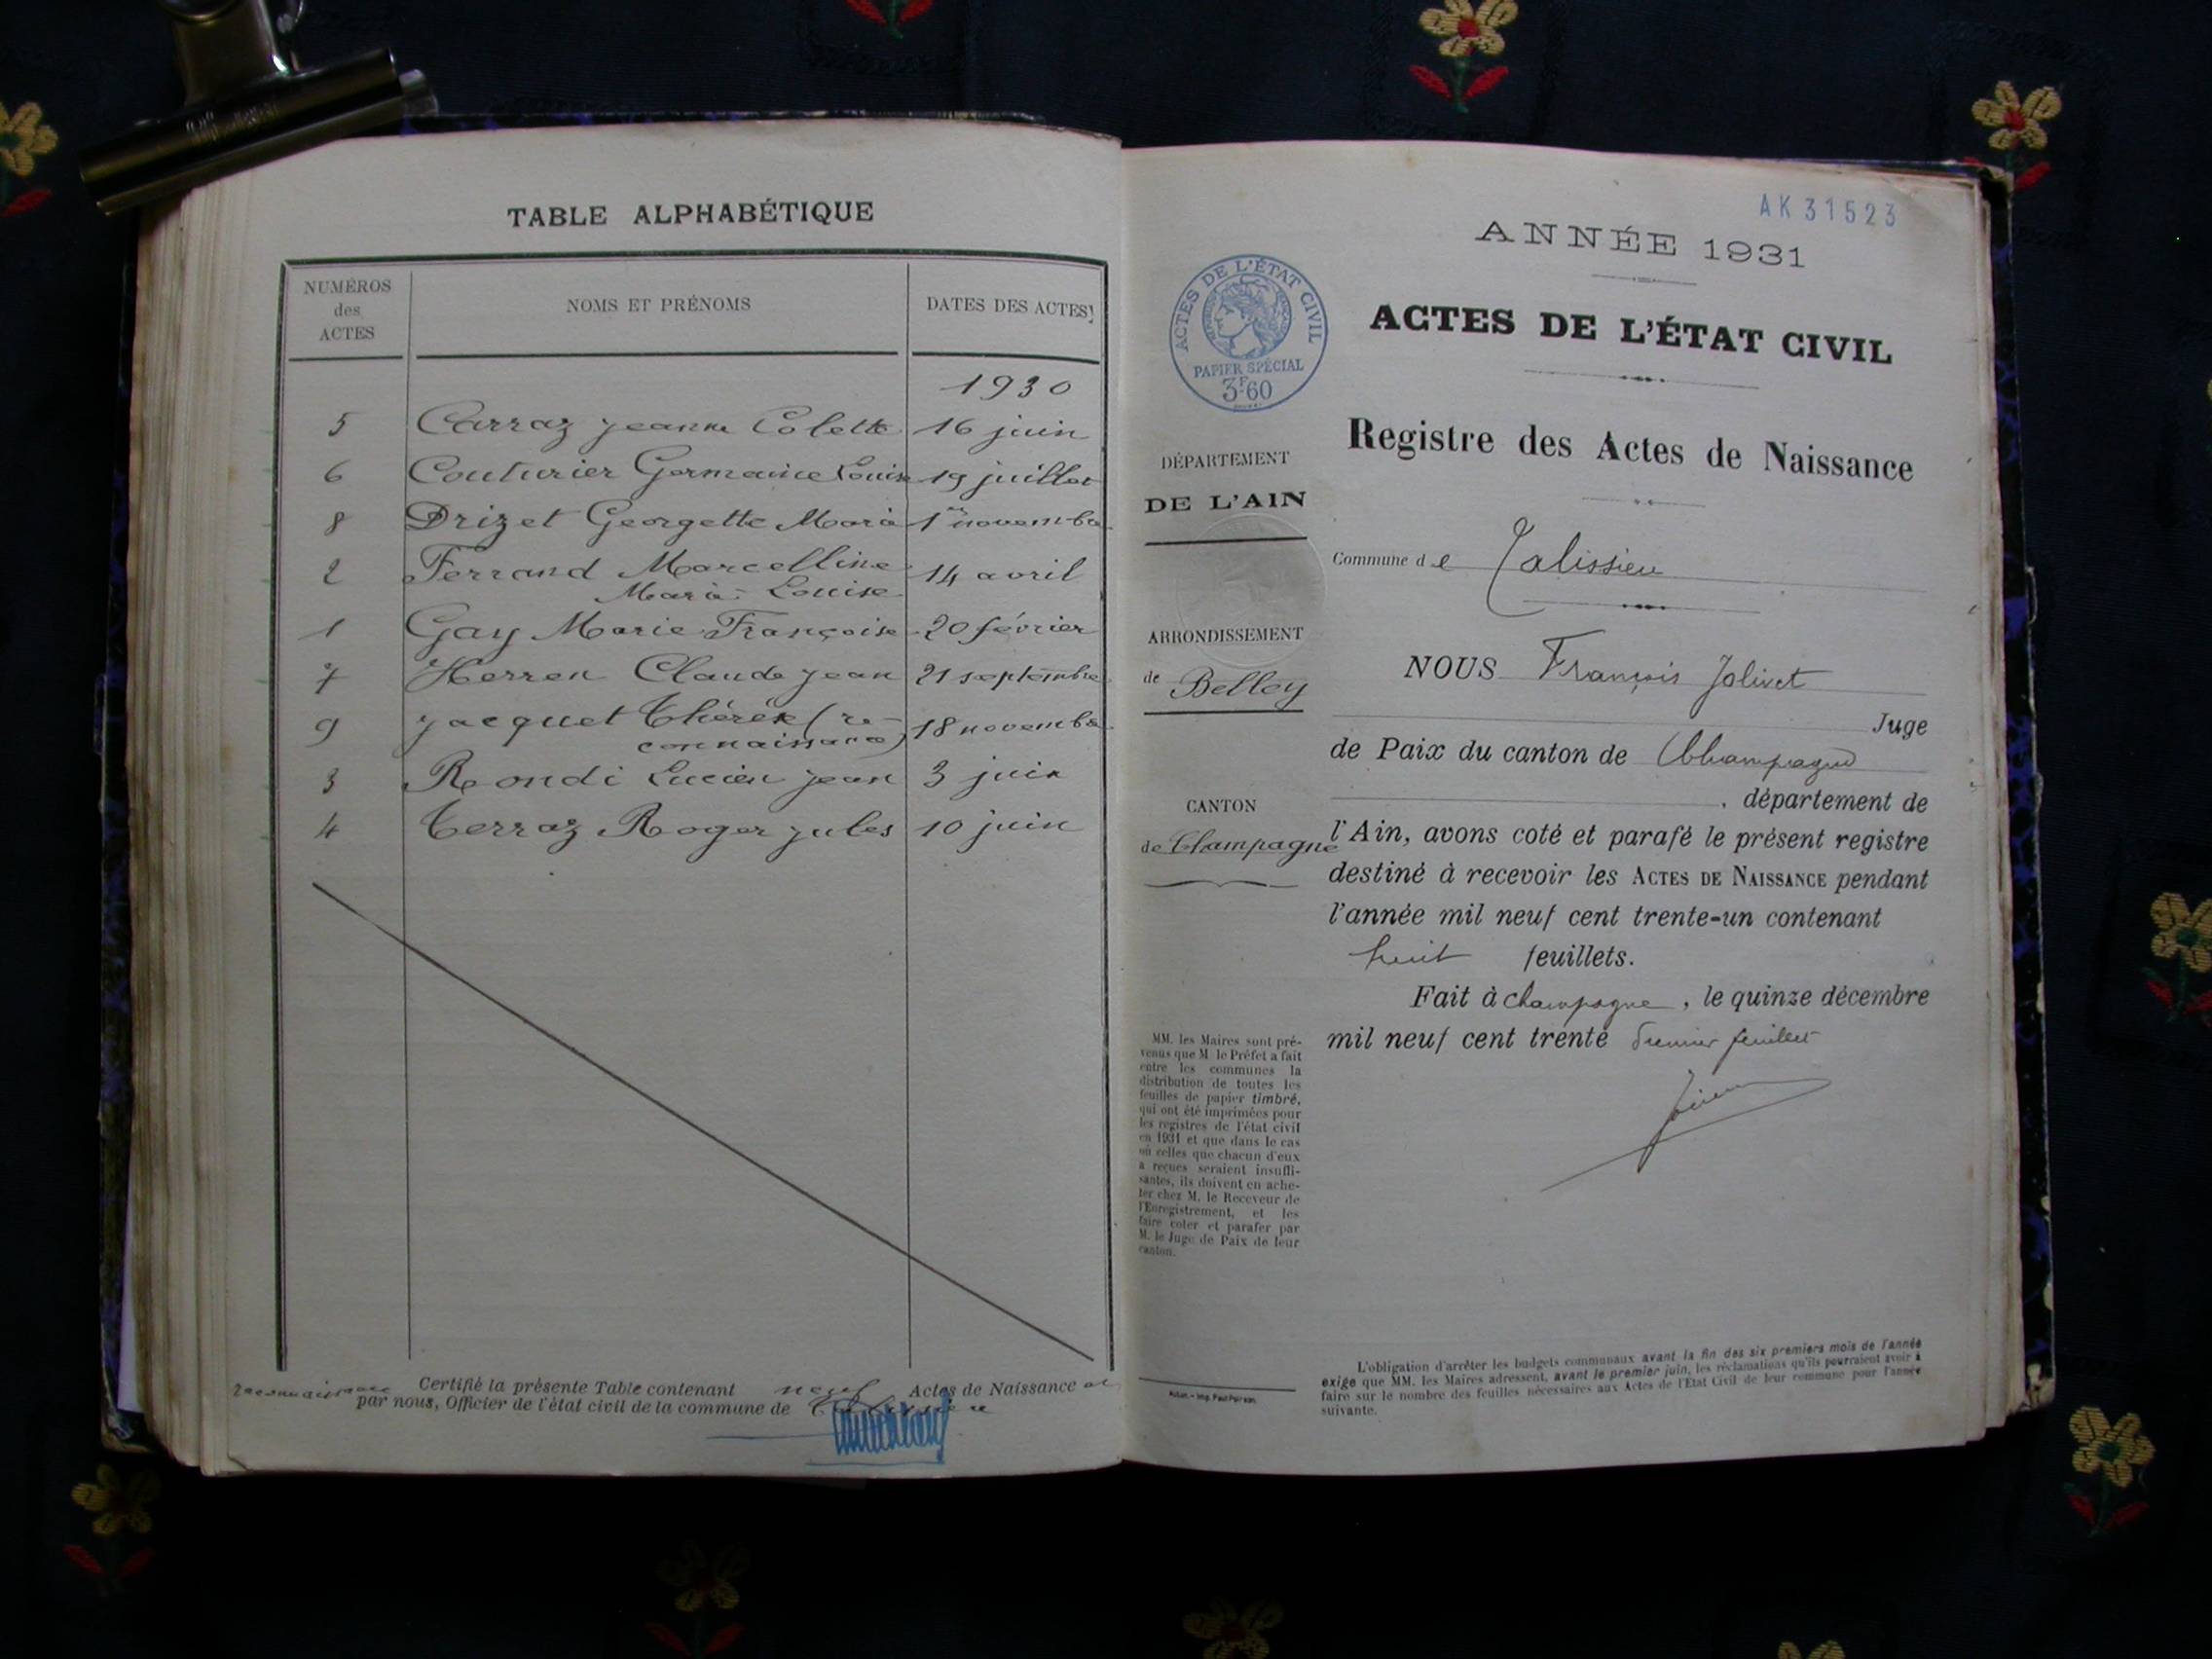 TABLE ALPHABÉTIQUE
NUMÉROS
des
ACTES
NOMS ET PRÉNOMS
DATES DES ACTES
1930
5 Carraz Jeanne Colette 16 juin
6 Couturier Germaine Louise 19 juillet
8 Drizet Georgette Maria 1er novembre
2 Ferrand Marcelline 14 avril
Maria Louise
1 Gay Marie Françoise 20 février
7 Herren Claude Jean 21 septembre
9 Jacquet Thérèse (re- 18 novembre
connaissance)
3 Rondi Lucien Jean 3 juin
4 Terraz Roger Jules 10 juin
Certifié la présente Table contenant neuf Actes de Naissance et
reconnaissance
par nous, Officier de l'état civil de la commune de Talissieu
AK 31523
ANNÉE 1931
ACTES DE L'ÉTAT CIVIL
PAPIER SPÉCIAL
3F60
ACTES DE L'ÉTAT CIVIL
Registre des Actes de Naissance
DÉPARTEMENT
DE L'AIN
Commune de Talissieu
ARRONDISSEMENT
de Belley
CANTON
de Champagne
NOUS François Jolivet
Juge
de Paix du canton de Champagne
, département de
l'Ain, avons coté et parafé le présent registre
destiné à recevoir les ACTES DE NAISSANCE pendant
l'année mil neuf cent trente-un contenant
huit feuillets.
Fait à Champagne, le quinze décembre
mil neuf cent trente Premier feuillet
MM. les Maires sont pré-
venus que M. le Préfet a fait
entre les communes la
distribution de toutes les
feuilles de papier timbré,
qui ont été imprimées pour
les registres de l'état civil
en 1931 et que dans le cas
où celles que chacun d'eux
a reçues seraient insuffi-
santes, ils doivent en ache-
ter chez M. le Receveur de
l'Enregistrement, et les
faire coter et parafer par
M. le Juge de Paix de leur
canton.
L'obligation d'arrêter les budgets communaux avant la fin des six premiers mois de l'année
exige que MM. les Maires adressent, avant le premier juin, les réclamations qu'ils pourraient avoir à
faire sur le nombre des feuilles nécessaires aux Actes de l'Etat Civil de leur commune pour l'année
suivante.